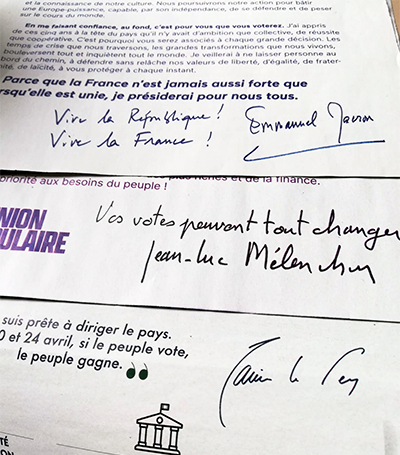 et la connaissance de notre culture. Nous poursuivrons notre action pour bâtir
une Europe puissance, capable, par son indépendance, de se défendre et de peser
sur le cours du monde.
En me faisant confiance, au fond, c'est pour vous que vous voterez. J'ai appris
de ces cinq ans à la tête du pays qu'il n'y avait d'ambition que collective, de réussite
que coopérative. C'est pourquoi vous serez associés à chaque grande décision. Les
temps de crise que nous traversons, les grandes transformations que nous vivons,
bouleversent tout et inquiètent tout le monde. Je veillerai à ne laisser personne au
bord du chemin, à défendre sans relâche nos valeurs de liberté, d'égalité, de frater-
nité, de laïcité, à vous protéger à chaque instant.
Parce que la France n'est jamais aussi forte que
rsqu'elle est unie, je présiderai pour nous tous.
Vive la République !
Vive la France !
Emmanuel Macron
plus riches et de la finance.
priorité aux besoins du peuple !
NION
PULAIRE
Vos votes peuvent tout changer
Jean-Luc Mélenchon
suis prête à diriger le pays.
0 et 24 avril, si le peuple vote,
le peuple gagne.
Marine Le Pen
TÉ